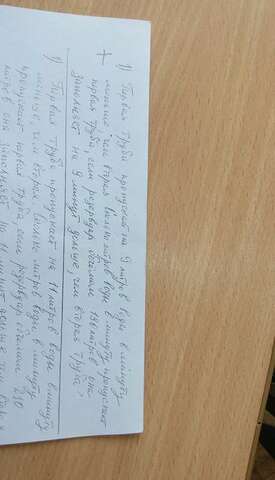 1) Первая труба пропускает на 9 литров воды в минуту
меньше, чем вторая. Сколько литров воды в минуту пропускает
первая труба, если резервуар объёмом 190 литров она
заполняет на 9 минут дольше, чем вторая труба?
1) Первая труба пропускает на 11 литров воды в минуту
меньше, чем вторая. Сколько литров воды в минуту
пропускает первая труба, если резервуар объёмом 210
литров она заполняет на 11 минут дольше, чем